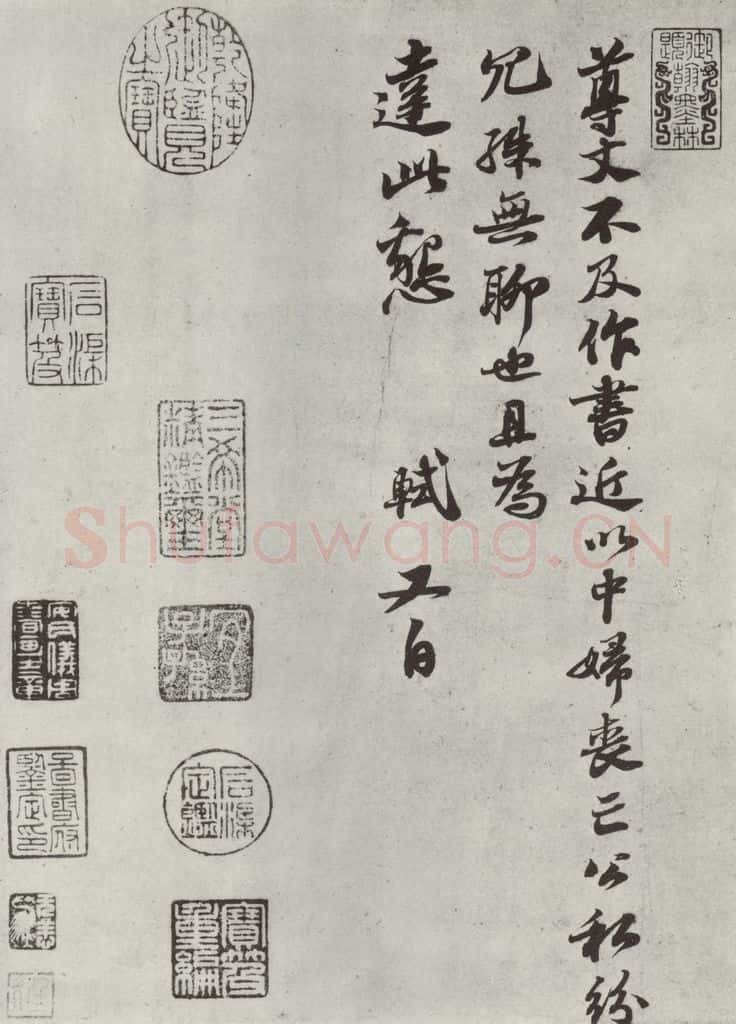 御題翰墨林
尊丈不及作書近以中婦喪亡公私紛
冗殊無聊也且為
達此懇 軾 又白
乾隆御覽之寶
三希堂精鑑璽
宜子孫
石渠定鑑
寶笈重編
石渠寶笈
安氏儀周書畫之章
Shufawang.CN